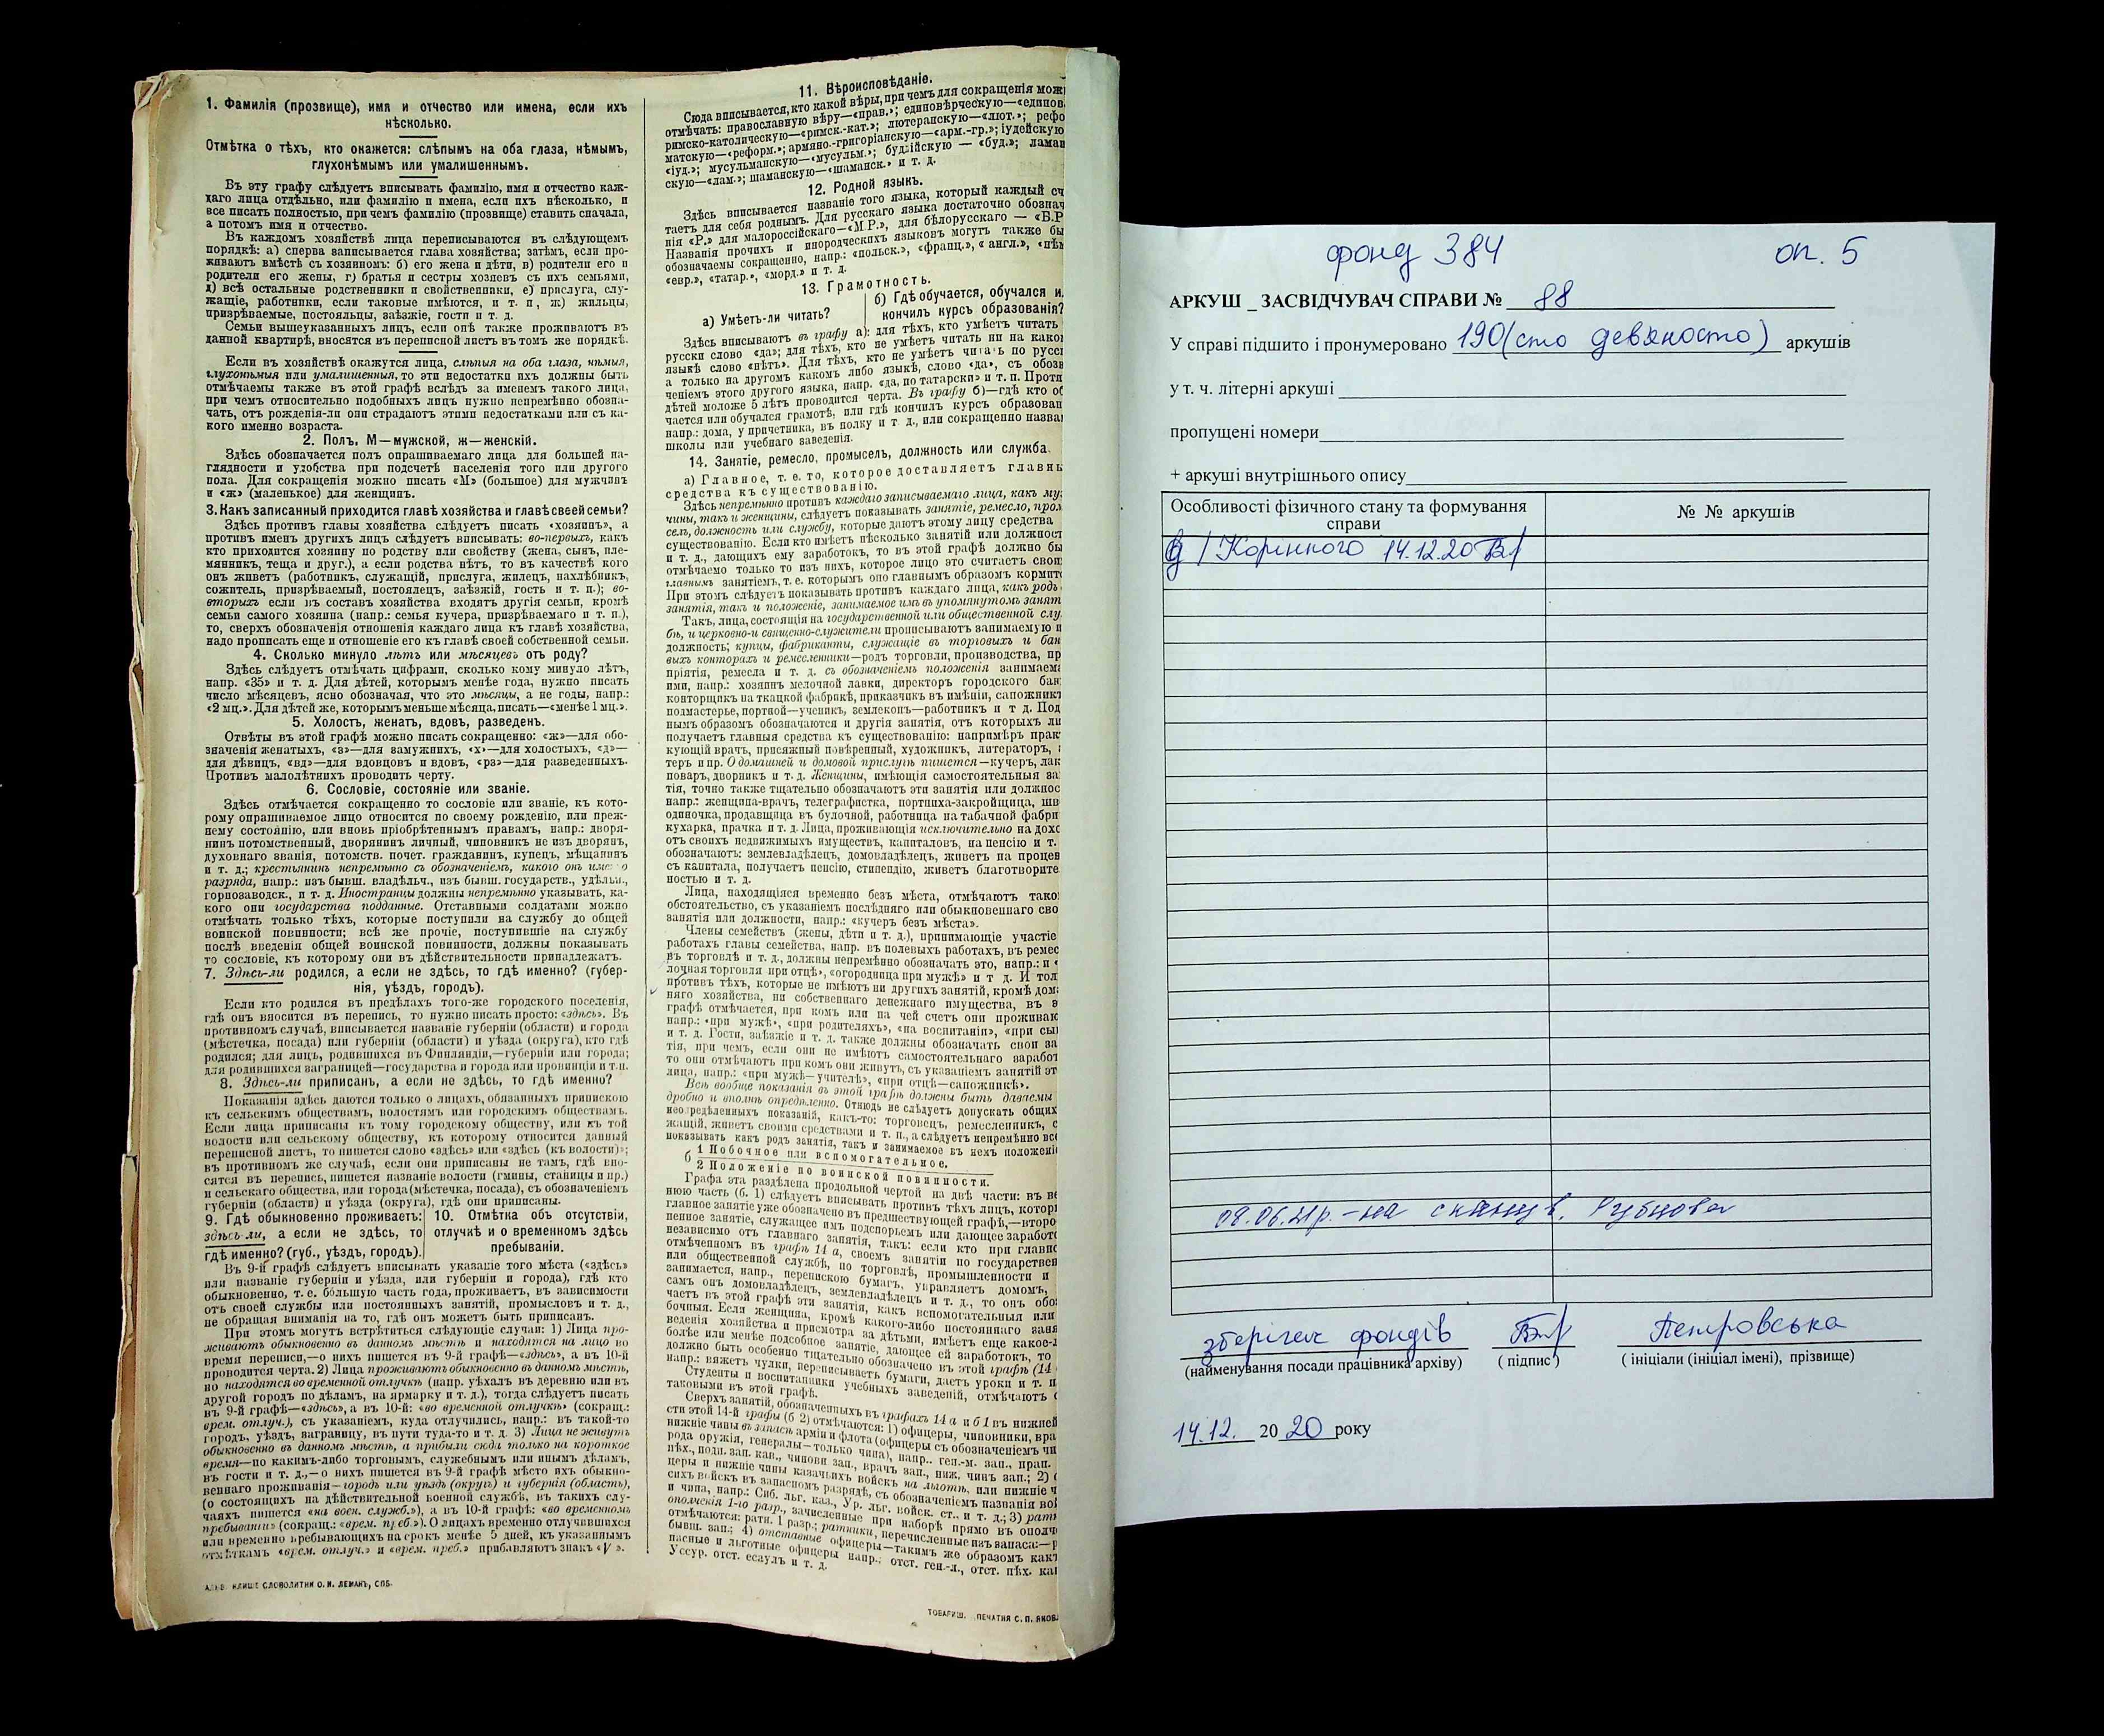 1. Фамилія (прозвище), имя и отчество или имена, если ихъ
нѣсколько.
Отмѣтка о тѣхъ, кто окажется: слѣпымъ на оба глаза, нѣмымъ,
глухонѣмымъ или умалишеннымъ.
Въ эту графу слѣдуетъ вписывать фамилію, имя и отчество каж-
даго лица отдѣльно, или фамилію и имена, если ихъ нѣсколько, и
все писать полностью, при чемъ фамилію (прозвище) ставить сначала,
а потомъ имя и отчество.
Въ каждомъ хозяйствѣ лица переписываются въ слѣдующемъ
порядкѣ: а) сперва записывается глава хозяйства; затѣмъ, если про-
живаютъ вмѣстѣ съ хозяиномъ: б) его жена и дѣти, в) родители его и
родители его жены, г) братья и сестры хозяевъ съ ихъ семьями,
д) всѣ остальные родственники и свойственники, е) прислуга, слу-
жащіе, работники, если таковые имѣются, и т. п, ж) жильцы,
призрѣваемые, постояльцы, заѣзжіе, гости и т. д.
Семьи вышеуказанныхъ лицъ, если онѣ также проживаютъ въ
данной квартирѣ, вносятся въ переписной листъ въ томъ же порядкѣ.
Если въ хозяйствѣ окажутся лица, слѣпыя на оба глаза, нѣмыя,
глухонѣмыя или умалишенныя, то эти недостатки ихъ должны быть
отмѣчаемы также въ этой графѣ вслѣдъ за именемъ такого лица,
при чемъ относительно подобныхъ лицъ нужно непремѣнно обозна-
чать, отъ рожденія-ли они страдаютъ этими недостатками или съ ка-
кого именно возраста.
2. Полъ, М—мужской, ж—женскій.
Здѣсь обозначается полъ опрашиваемаго лица для большей на-
глядности и удобства при подсчетѣ населенія того или другого
пола. Для сокращенія можно писать «М» (большое) для мужчинъ
и «ж» (маленькое) для женщинъ.
3. Какъ записанный приходится главѣ хозяйства и главѣ своей семьи?
Здѣсь противъ главы хозяйства слѣдуетъ писать «хозяинъ», а
противъ именъ другихъ лицъ слѣдуетъ вписывать: во-первыхъ, какъ
кто приходится хозяину по родству или свойству (жена, сынъ, пле-
мянникъ, теща и друг.), а если родства нѣтъ, то въ качествѣ кого
онъ живетъ (работникъ, служащій, прислуга, жилецъ, нахлѣбникъ,
сожитель, призрѣваемый, постоялецъ, заѣзжій, гость и т. п.); во-
вторыхъ если въ составъ хозяйства входятъ другія семьи, кромѣ
семьи самого хозяина (напр.: семья кучера, призрѣваемаго и т. п.),
то, сверхъ обозначенія отношенія каждаго лица къ главѣ хозяйства,
надо прописать еще и отношеніе его къ главѣ своей собственной семьи.
4. Сколько минуло лѣтъ или мѣсяцевъ отъ роду?
Здѣсь слѣдуетъ отмѣчать цифрами, сколько кому минуло лѣтъ,
напр. «35» и т. д. Для дѣтей, которымъ менѣе года, нужно писать
число мѣсяцевъ, ясно обозначая, что это мѣсяцы, а не годы, напр.:
«2 мц.». Для дѣтей же, которымъ меньше мѣсяца, писать—«менѣе 1 мц.».
5. Холостъ, женатъ, вдовъ, разведенъ.
Отвѣты въ этой графѣ можно писать сокращенно: «ж»—для обо-
значенія женатыхъ, «з»—для замужнихъ, «х»—для холостыхъ, «д»—
для дѣвицъ, «вд»—для вдовцовъ и вдовъ, «рз»—для разведенныхъ.
Противъ малолѣтнихъ проводить черту.
6. Сословіе, состояніе или званіе.
Здѣсь отмѣчается сокращенно то сословіе или званіе, къ кото-
рому опрашиваемое лицо относится по своему рожденію, или преж-
нему состоянію, или вновь пріобрѣтеннымъ правамъ, напр.: дворя-
нинъ потомственный, дворянинъ личный, чиновникъ не изъ дворянъ,
духовнаго званія, потомств. почет. гражданинъ, купецъ, мѣщанинъ
и т. д.; крестьянинъ непремѣнно съ обозначеніемъ, какого онъ имен но
разряда, напр.: изъ бывш. владѣльч., изъ бывш. государств., удѣльн.,
горнозаводск., и т. д. Иностранцы должны непремѣнно указывать, ка-
кого они государства подданные. Отставными солдатами можно
отмѣчать только тѣхъ, которые поступили на службу до общей
воинской повинности; всѣ же прочіе, поступившіе на службу
послѣ введенія общей воинской повинности, должны показывать
то сословіе, къ которому они въ дѣйствительности принадлежатъ.
7. Здѣсь-ли родился, а если не здѣсь, то гдѣ именно? (губер-
нія, уѣздъ, городъ).
Если кто родился въ предѣлахъ того-же городского поселенія,
гдѣ онъ вносится въ перепись, то нужно писать просто: «здѣсь». Въ
противномъ случаѣ, вписывается названіе губерніи (области) и города
(мѣстечка, посада) или губерніи (области) и уѣзда (округа), кто гдѣ
родился; для лицъ, родившихся въ Финляндіи,—губерніи или города;
для родившихся заграницей—государства и города или провинціи и т.п.
8. Здѣсь-ли приписанъ, а если не здѣсь, то гдѣ именно?
Показанія здѣсь даются только о лицахъ, обязанныхъ припискою
къ сельскимъ обществамъ, волостямъ или городскимъ обществамъ.
Если лица приписаны къ тому городскому обществу, или къ той
волости или сельскому обществу, къ которому относится данный
переписной листъ, то пишется слово «здѣсь» или «здѣсь (къ волости)»;
въ противномъ же случаѣ, если они приписаны не тамъ, гдѣ вно-
сятся въ перепись, пишется названіе волости (гмины, станицы и пр.)
и сельскаго общества, или города (мѣстечка, посада), съ обозначеніемъ
губерніи (области) и уѣзда (округа), гдѣ они приписаны.
9. Гдѣ обыкновенно проживаетъ:
здѣсь-ли, а если не здѣсь, то
гдѣ именно? (губ., уѣздъ, городъ).
10. Отмѣтка объ отсутствіи,
отлучкѣ и о временномъ здѣсь
пребываніи.
Въ 9-й графѣ слѣдуетъ вписывать указаніе того мѣста («здѣсь»
или названіе губерніи и уѣзда, или губерніи и города), гдѣ кто
обыкновенно, т. е. бо́льшую часть года, проживаетъ, въ зависимости
отъ своей службы или постоянныхъ занятій, промысловъ и т. д.,
не обращая вниманія на то, гдѣ онъ можетъ быть приписанъ.
При этомъ могутъ встрѣтиться слѣдующіе случаи: 1) Лица про-
живаютъ обыкновенно въ данномъ мѣстѣ и находятся на лицо во
время переписи,—о нихъ пишется въ 9-й графѣ—«здѣсь», а въ 10-й
проводится черта. 2) Лица проживаютъ обыкновенно въ данномъ мѣстѣ,
но находятся во временной отлучкѣ (напр. уѣхалъ въ деревню или въ
другой городъ по дѣламъ, на ярмарку и т. д.), тогда слѣдуетъ писать
въ 9-й графѣ—«здѣсь», а въ 10-й: «во временной отлучкѣ» (сокращ.:
врем. отлуч.), съ указаніемъ, куда отлучились, напр.: въ такой-то
городъ, уѣздъ, заграницу, въ пути туда-то и т. д. 3) Лица не живутъ
обыкновенно въ данномъ мѣстѣ, а прибыли сюда только на короткое
время—по какимъ-либо торговымъ, служебнымъ или инымъ дѣламъ,
въ гости и т. д.,—о нихъ пишется въ 9-й графѣ мѣсто ихъ обыкно-
веннаго проживанія—городъ или уѣздъ (округъ) и губернія (область),
(о состоящихъ на дѣйствительной военной службѣ, въ такихъ слу-
чаяхъ пишется «на воен. служб.»), а въ 10-й графѣ: «во временномъ
пребываніи» (сокращ.: «врем. преб.»). О лицахъ временно отлучившихся
или временно пребывающихъ на срокъ менѣе 5 дней, къ указаннымъ
отмѣткамъ «врем. отлуч.» и «врем. преб.» прибавляютъ знакъ «V».
КЛИШЕ СЛОВОЛИТНИ О. И. ЛЕМАНЪ, СПБ.
11. Вѣроисповѣданіе.
Сюда вписывается, кто какой вѣры, при чемъ для сокращенія мож
отмѣчать: православную вѣру—«прав.»; единовѣрческую—«единов.
римско-католическую—«римск.-кат.»; лютеранскую—«лют.»; рефо
матскую—«реформ.»; армяно-григоріанскую—«арм.-гр.»; іудейскую
«іуд.»; мусульманскую—«мусульм.»; буддійскую — «буд.»; ламаи
скую—«лам.»; шаманскую—«шаманск.» и т. д.
12. Родной языкъ.
Здѣсь вписывается названіе того языка, который каждый сч
таетъ для себя роднымъ. Для русскаго языка достаточно обознач
нія «Р.» для малороссійскаго—«М.Р.», для бѣлорусскаго — «Б.Р
Названія прочихъ и инородческихъ языковъ могутъ также бы
обозначаемы сокращенно, напр.: «польск.», «франц.», « англ.», «нѣм
«евр.», «татар.», «морд.» и т. д.
13. Грамотность.
а) Умѣетъ-ли читать?
б) Гдѣ обучается, обучался и.
кончилъ курсъ образованія?
Здѣсь вписываютъ въ графу а): для тѣхъ, кто умѣетъ читать
русски слово «да»; для тѣхъ, кто не умѣетъ читать ни на како
языкѣ слово «нѣтъ». Для тѣхъ, кто не умѣетъ читать по русс
а только на другомъ какомъ либо языкѣ, слово «да», съ обозн
ченіемъ этого другого языка, напр. «да, по татарски» и т. п. Проти
дѣтей моложе 5 лѣтъ проводится черта. Въ графу б)—гдѣ кто об
чается или обучался грамотѣ, или гдѣ кончилъ курсъ образован
напр.: дома, у причетника, въ полку и т. д., или сокращенно назва
школы или учебнаго заведенія.
14. Занятіе, ремесло, промыселъ, должность или служба.
а) Главное, т. е. то, которое доставляетъ главны
средства къ существованію.
Здѣсь непремѣнно противъ каждаго записываемаго лица, какъ му
чины, такъ и женщины, слѣдуетъ показывать занятіе, ремесло, пром
селъ, должность или службу, которые даютъ этому лицу средства
существованію. Если кто имѣетъ нѣсколько занятій или должност
и т. д., дающихъ ему заработокъ, то въ этой графѣ должно бы
отмѣчаемо только то изъ нихъ, которое лицо это считаетъ свои
главнымъ занятіемъ, т. е. которымъ оно главнымъ образомъ кормит
При этомъ слѣдуетъ показывать противъ каждаго лица, какъ родъ
занятія, такъ и положеніе, занимаемое имъ въ упомянутомъ занят
Такъ, лица, состоящія на государственной или общественной слу
бѣ, и церковно-и священно-служители прописываютъ занимаемую и
должность; купцы, фабриканты, служащіе въ торговыхъ и бан
выхъ конторахъ и ремесленники—родъ торговли, производства, пр
пріятія, ремесла и т. д. съ обозначеніемъ положенія занимаема
ими, напр.: хозяинъ мелочной лавки, директоръ городского бан
конторщикъ на ткацкой фабрикѣ, приказчикъ въ имѣніи, сапожникъ
подмастерье, портной—ученикъ, землекопъ—работникъ и т д. Под
нымъ образомъ обозначаются и другія занятія, отъ которыхъ ли
получаетъ главныя средства къ существованію: напримѣръ прак
кующій врачъ, присяжный повѣренный, художникъ, литераторъ,
теръ и пр. О домашней и домовой прислугѣ пишется—кучеръ, лак
поваръ, дворникъ и т. д. Женщины, имѣющія самостоятельныя за
тія, точно также тщательно обозначаютъ эти занятія или должнос
напр.: женщина-врачъ, телеграфистка, портниха-закройщица, шв
одиночка, продавщица въ булочной, работница на табачной фабри
кухарка, прачка и т. д. Лица, проживающія исключительно на дохо
отъ своихъ недвижимыхъ имуществъ, капиталовъ, на пенсію и т.
обозначаютъ: землевладѣлецъ, домовладѣлецъ, живетъ на процен
съ капитала, получаетъ пенсію, стипендію, живетъ благотворите
ностью и т. д.
Лица, находящіяся временно безъ мѣста, отмѣчаютъ тако
обстоятельство, съ указаніемъ послѣдняго или обыкновеннаго сво
занятія или должности, напр.: «кучеръ безъ мѣста».
Члены семействъ (жены, дѣти и т. д.), принимающіе участіе
работахъ главы семейства, напр. въ полевыхъ работахъ, въ ремес
въ торговлѣ и т. д., должны непремѣнно обозначать это, напр.: и «
лочная торговля при отцѣ», «огородница при мужѣ» и т д. И тол
противъ тѣхъ, которые не имѣютъ ни другихъ занятій, кромѣ дом
няго хозяйства, ни собственнаго денежнаго имущества, въ э
графѣ отмѣчается, при комъ или на чей счетъ они проживаю
напр.: «при мужѣ», «при родителяхъ», «на воспитаніи», «при сы
и т. д. Гости, заѣзжіе и т. д. также должны обозначать свои за
тія, при чемъ, если они не имѣютъ самостоятельнаго заработ
то они отмѣчаютъ при комъ они живутъ, съ указаніемъ занятій эт
лица, напр.: «при мужѣ—учителѣ», «при отцѣ—сапожникѣ».
Всѣ вообще показанія въ этой графѣ должны быть даваемы
дробно и вполнѣ опредѣленно. Отнюдь не слѣдуетъ допускать общихъ
неопредѣленныхъ показаній, какъ-то: торговецъ, ремесленникъ, с
жащій, живетъ своими средствами и т. п., а слѣдуетъ непремѣнно всѣ
показывать какъ родъ занятія, такъ и занимаемое въ немъ положені
б
1 Побочное или вспомогательное.
2 Положеніе по воинской повинности.
Графа эта раздѣлена продольной чертой на двѣ части: въ ве
нюю часть (б. 1) слѣдуетъ вписывать противъ тѣхъ лицъ, котор
главное занятіе уже обозначено въ предшествующей графѣ,—второ
пенное занятіе, служащее имъ подспорьемъ или дающее заработ
независимо отъ главнаго занятія, такъ: если кто при главно
отмѣченномъ въ графѣ 14 а, своемъ занятіи по государствен
или общественной службѣ, по торговлѣ, промышленности и
занимается, напр., перепискою бумагъ, управляетъ домомъ,
самъ онъ домовладѣлецъ, землевладѣлецъ и т. д., то онъ обо
чаетъ въ этой графѣ эти занятія, какъ вспомогательныя или
бочныя. Если женщина, кромѣ какого-либо постояннаго заня
веденія хозяйства и присмотра за дѣтьми, имѣетъ еще какое-л
болѣе или менѣе подсобное занятіе, дающее ей заработокъ, то
должно быть особенно тщательно обозначено въ этой графѣ (14
напр.: вяжетъ чулки, переписываетъ бумаги, даетъ уроки и т. п
Студенты и воспитанники учебныхъ заведеній, отмѣчаютъ с
таковыми въ этой графѣ.
Сверхъ занятій, обозначенныхъ въ графахъ 14 а и б 1 въ нижней
сти этой 14-й графы (б 2) отмѣчаются: 1) офицеры, чиновники, вра
нижніе чины въ запасѣ арміи и флота (офицеры съ обозначеніемъ чи
рода оружія, генералы—только чина), напр.. ген.-м. зап., прап.
пѣх., подп. зап. кав., чиновн зап., врачъ зап., ниж. чинъ зап.; 2) о
церы и нижніе чины казачьихъ войскъ на льготѣ, или нижніе ч
сихъ войскъ въ запасномъ разрядѣ, съ обозначеніемъ названія вой
и чина, напр.: Сиб. льг. каз., Ур. льг. войск. ст.. и т. д.; 3) ратн
ополченія 1-го разр., зачисленные при наборѣ прямо въ ополч
отмѣчаются: ратн. 1 разр.; ратники, перечисленные изъ запаса:—р
бывш. зап.; 4) отставные офицеры—такимъ же образомъ какъ
пасные и льготные офицеры напр.: отст. ген.-л., отст. пѣх. кап
Уссур. отст. есаулъ и т. д.
ТОВАРИЩ. ПЕЧАТНЯ С. П. ЯКОВЛ
фонд 384 оп. 5
АРКУШ _ ЗАСВІДЧУВАЧ СПРАВИ № 88
У справі підшито і пронумеровано 190 (сто дев'яносто) аркушів
у т. ч. літерні аркуші
пропущені номери
+ аркуші внутрішнього опису
Особливості фізичного стану та формування
справи
№ № аркушів
14.12.20
08.06.21р. – на сканув. Рубцова
зберігач фондів Петровська
(найменування посади працівника архіву) ( підпис ) ( ініціали (ініціал імені), прізвище)
14.12. 2020 року